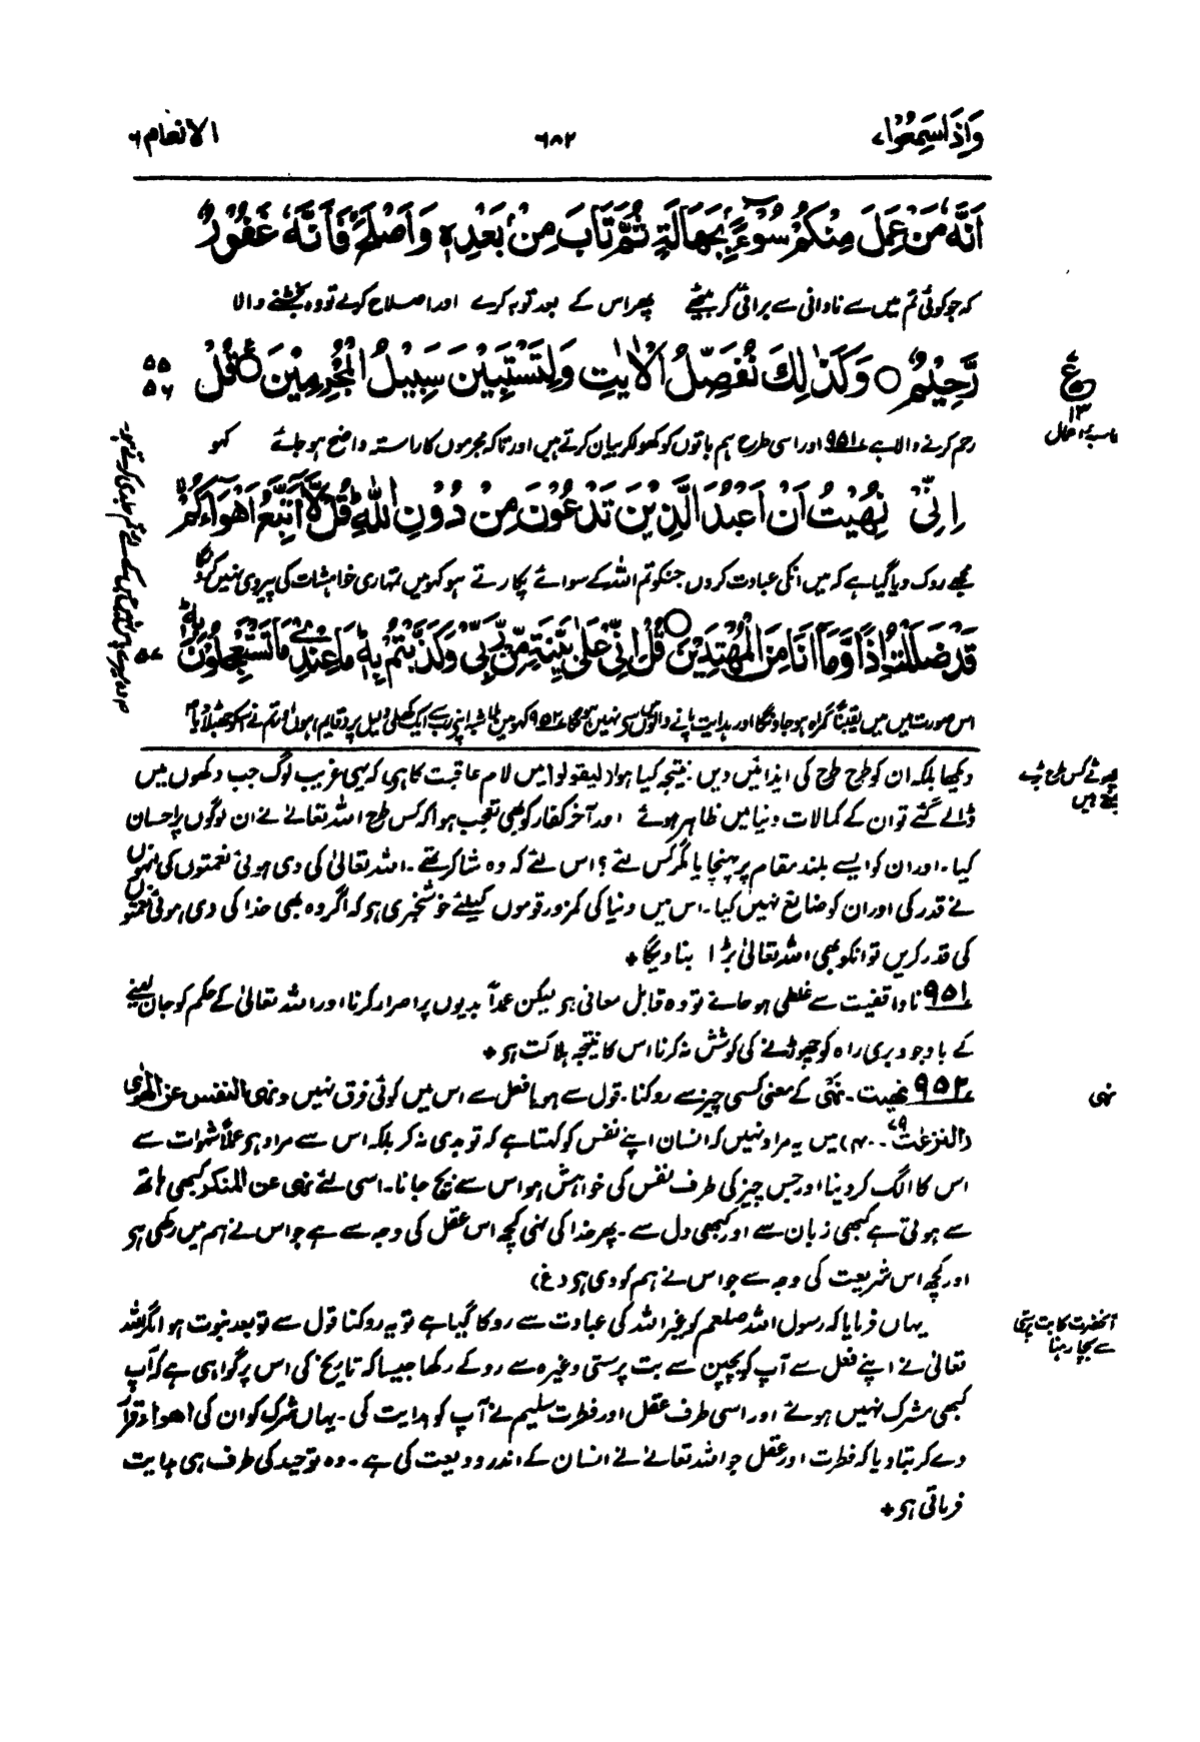 وَاِذَا سَمِعُوْا ٧ ٦٨٢ الانعام ٦
اَنَّهٗ مَنْ عَمِلَ مِنْكُمْ سُوْٓءًۢا بِجَهَالَةٍ ثُمَّ تَابَ مِنْۢ بَعْدِهٖ وَاَصْلَحَ فَاَنَّهٗ غَفُوْرٌ
کہ جو کوئی تم میں سے نادانی سے برائی کر بیٹھے پھر اس کے بعد توبہ کرے اور اصلاح کرے تو وہ بخشنے والا
رَّحِيْمٌ ○ وَكَذٰلِكَ نُفَصِّلُ الْاٰيٰتِ وَلِتَسْتَبِيْنَ سَبِيْلُ الْمُجْرِمِيْنَ ○ قُلْ ٥٥ ٥٦
ع ١٣
رحم کرنے والا ہے ٩٥١ اور اسی طرح ہم باتوں کو کھولکر بیان کرتے ہیں اور تاکہ مجرموں کا راستہ واضح ہو جائے کہو
اِنِّيْ نُهِيْتُ اَنْ اَعْبُدَ الَّذِيْنَ تَدْعُوْنَ مِنْ دُوْنِ اللّٰهِ قُلْ لَّآ اَتَّبِعُ اَهْوَآءَكُمْ
مجھے روک دیا گیا ہے کہ میں انکی عبادت کروں جنکو تم اللہ کے سوائے پکارتے ہو کہو میں تمہاری خواہشات کی پیروی نہیں کرونگا
قَدْ ضَلَلْتُ اِذًا وَّمَآ اَنَا مِنَ الْمُهْتَدِيْنَ ○ قُلْ اِنِّيْ عَلٰى بَيِّنَةٍ مِّنْ رَّبِّيْ وَكَذَّبْتُمْ بِهٖ مَا عِنْدِيْ مَا تَسْتَعْجِلُوْنَ بِهٖ ٥٧
اس صورت میں میں یقیناً گمراہ ہو جاؤنگا اور ہدایت پانے والوں میں سے نہیں ہونگا ٩٥٢ کہو میں بلاشبہ اپنے رب سے ایک کھلی دلیل پر قایم ہوں اور تم نے اسکو جھٹلا دیا
دیکھا بلکہ ان کو طرح طرح کی ایذائیں دیں نتیجہ کیا ہوا۔ لیقولوا میں لام عاقبت کا ہی کہ یہی غریب لوگ جب دکھوں میں
ڈالے گئے تو ان کے کمالات دنیا میں ظاہر ہوئے اور آخر کفار کو بھی تعجب ہوا کہ کس طرح اللہ تعالیٰ نے ان لوگوں پر احسان
کیا۔ اور ان کو ایسے بلند مقام پر پہنچایا مگر کس لئے؟ اس لئے کہ وہ شاکر تھے۔ اللہ تعالیٰ کی دی ہوئی نعمتوں کی انہوں
نے قدر کی اور ان کو ضایع نہیں کیا۔ اس میں دنیا کی کمزور قوموں کیلئے خوشخبری ہو کہ اگر وہ بھی خدا کی دی ہوئی نعمتوں
کی قدر کریں تو انکو بھی اللہ تعالیٰ بڑا بنا دیگا +
٩٥١ ناواقفیت سے غلطی ہو جائے تو وہ قابل معافی ہو لیکن عمداً بدیوں پر اصرار کرنا اور اللہ تعالیٰ کے حکم کو جان لینے
کے باوجود بری راہ کو چھوڑنے کی کوشش نہ کرنا اس کا نتیجہ ہلاکت ہو +
نہی
٩٥٢ نھیت۔ نَھْیٌ کے معنی کسی چیز سے روکنا۔ قول سے ہو یا فعل سے اس میں کوئی فرق نہیں ونھی النفس عن الھویٰ
(النزعٰت ٧٩۔ ٤٠) میں یہ مراد نہیں کہ انسان اپنے نفس کو کہتا ہے کہ تو بدی نہ کر بلکہ اس سے مراد ہو عملاً شہوات سے
اس کا الگ کر دینا اور جس چیز کی طرف نفس کی خواہش ہو اس سے بچ جانا۔ اسی لئے نہی عن المنکر کبھی ہاتھ
سے ہوتی ہے کبھی زبان سے اور کبھی دل سے۔ پھر خدا کی نہی کچھ اس عقل کی وجہ سے ہے جو اس نے ہم میں رکھی ہو
اور کچھ اس شریعت کی وجہ سے جو اس نے ہم کو دی ہو (غ)
آنحضرت کا بت پرستی سے بچا رہنا
یہاں فرمایا کہ رسول اللہ صلعم کو غیر اللہ کی عبادت سے روکا گیا ہے تو یہ روکنا قول سے تو بعد نبوت ہو مگر اللہ
تعالیٰ نے اپنے فعل سے آپ کو بچپن سے بت پرستی وغیرہ سے روکے رکھا جیسا کہ تاریخ کی اس پر گواہی ہے کہ آپ
کبھی مشرک نہیں ہوئے اور اسی طرف عقل اور فطرت سلیم نے آپ کو ہدایت کی۔ یہاں شرک کو ان کی اھواء قرار
دے کر بتا دیا کہ فطرت اور عقل جو اللہ تعالیٰ نے انسان کے اندر ودیعت کی ہے۔ وہ توحید کی طرف ہی ہدایت
فرماتی ہو +